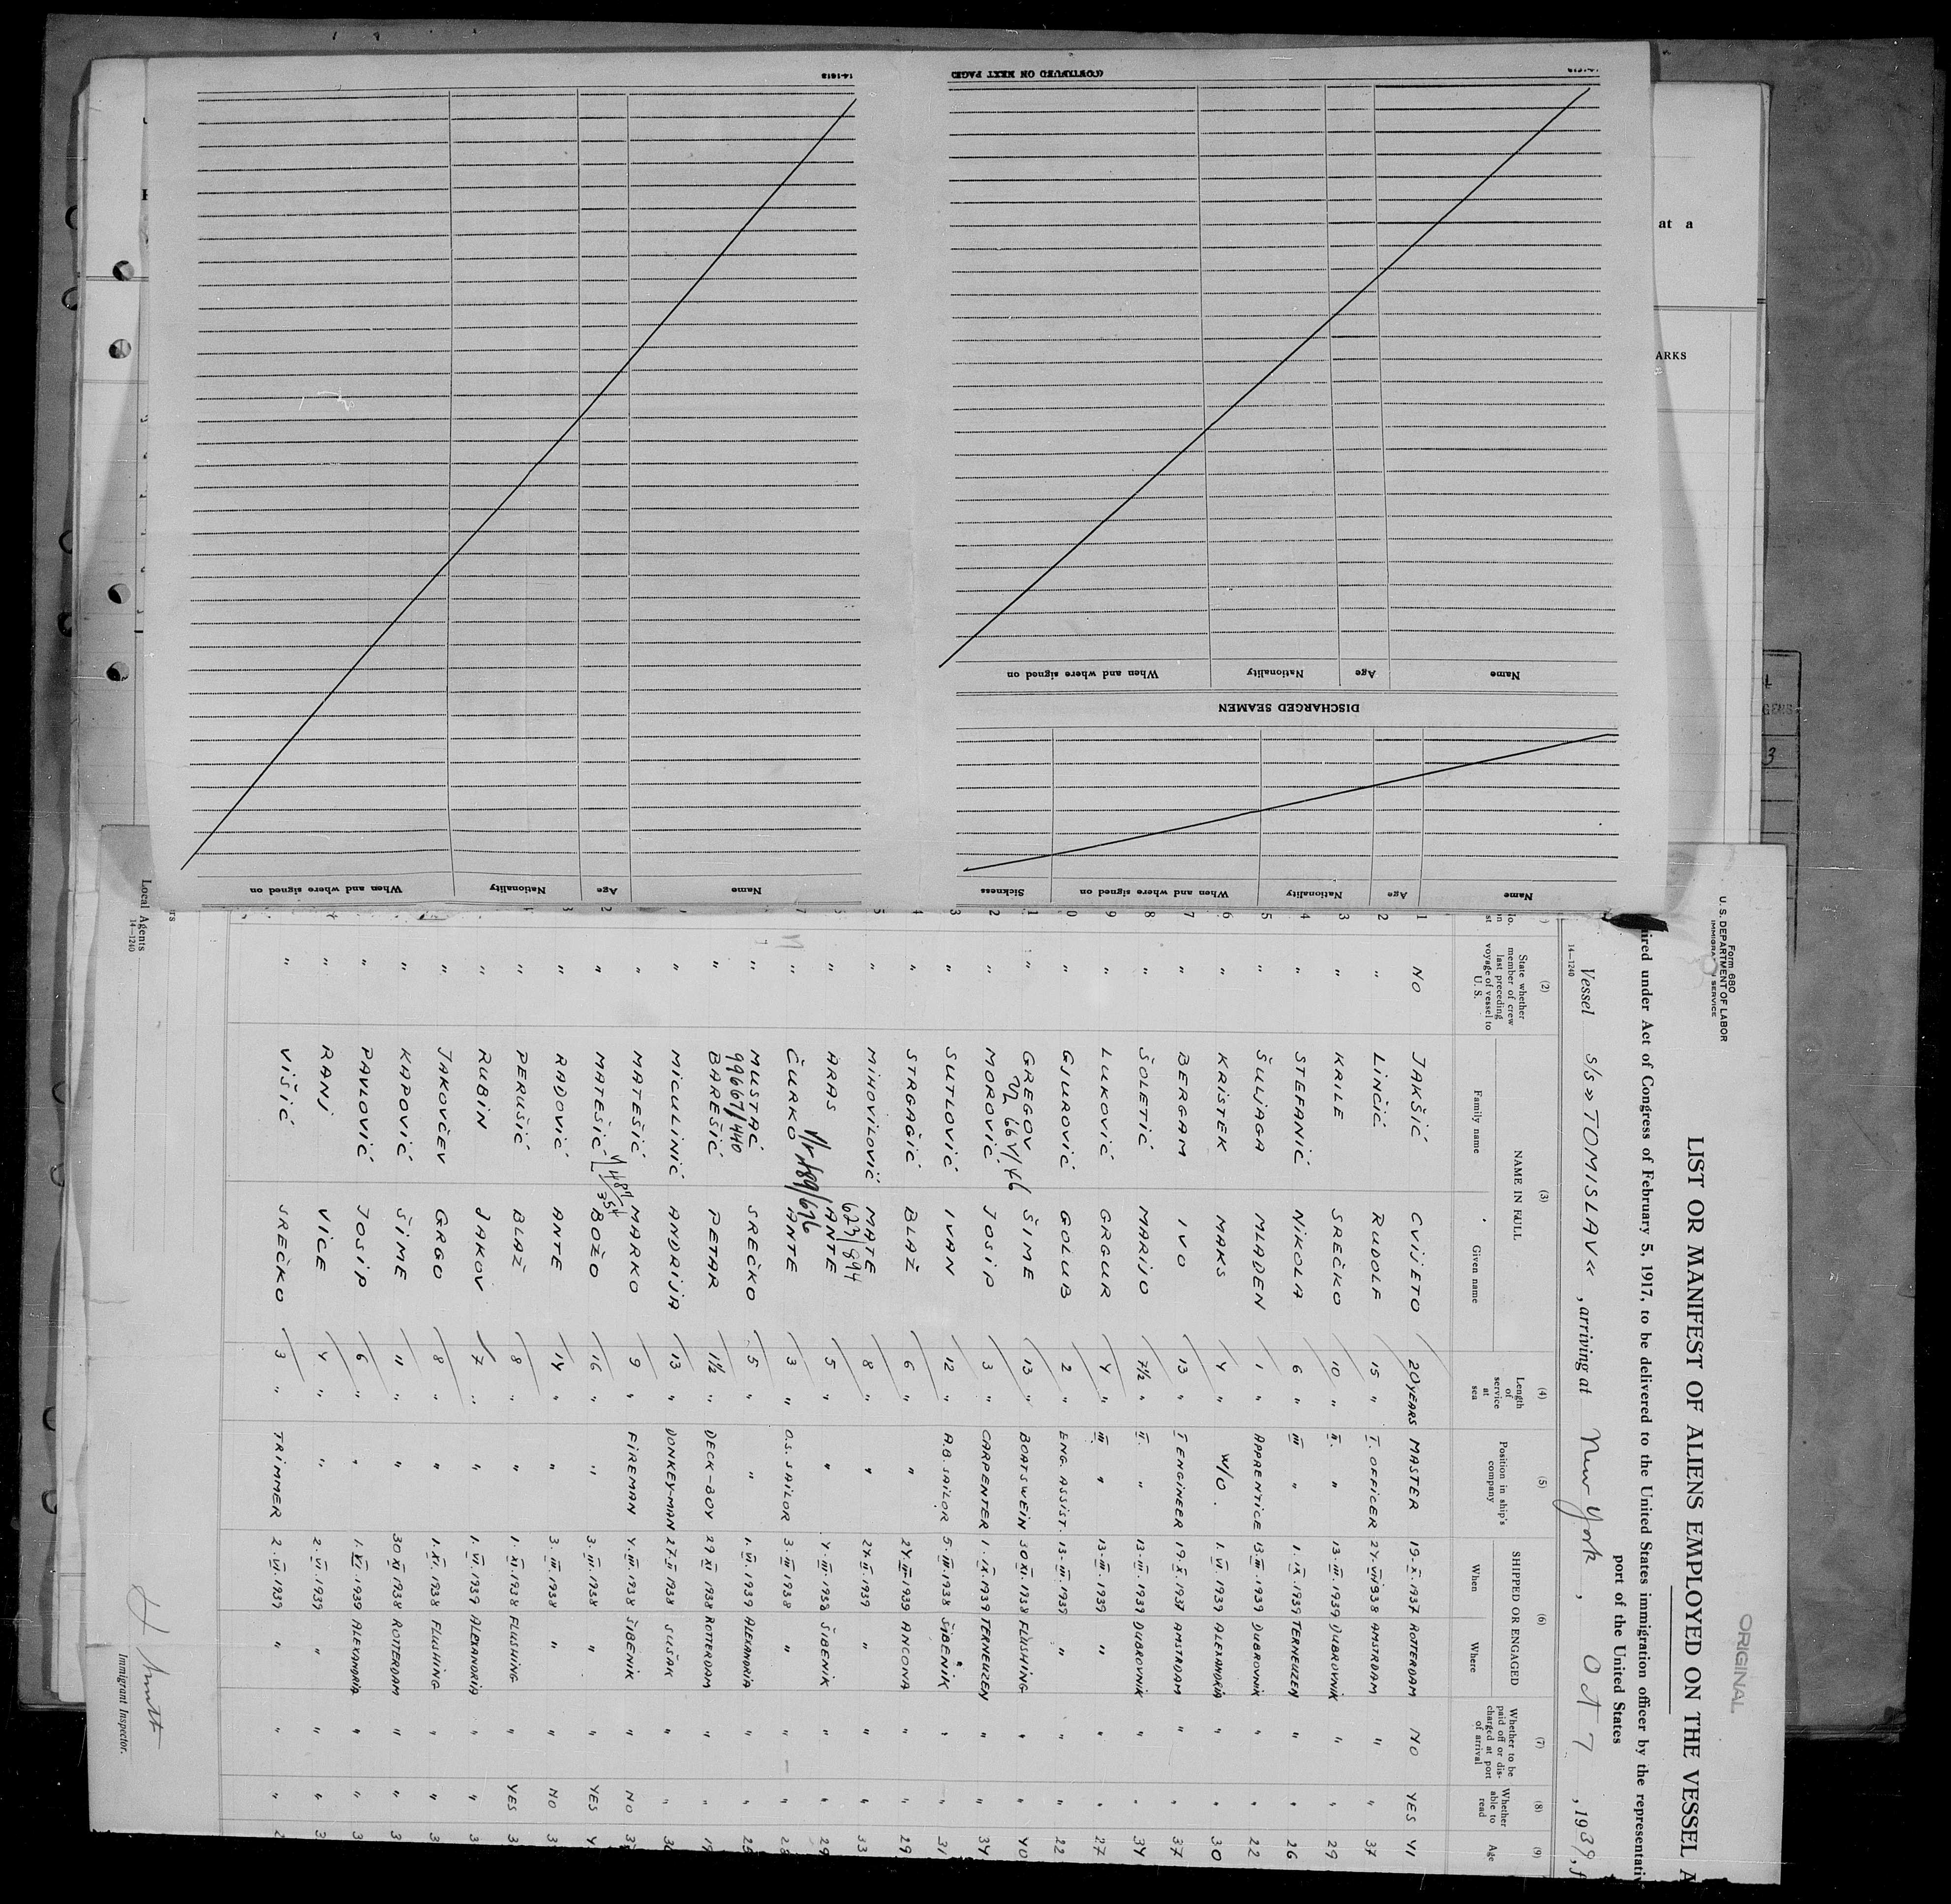 14-1613
(CONTINUED ON NEXT PAGE)
Name Age Nationality When and where signed on
DISCHARGED SEAMEN
Name Age Nationality When and where signed on Sickness
Name Age Nationality When and where signed on
at a
ARKS
3
ORIGINAL
Form 680
U. S. DEPARTMENT OF LABOR
SERVICE
LIST OR MANIFEST OF ALIENS EMPLOYED ON THE VESSEL A
ired under Act of Congress of February 5, 1917, to be delivered to the United States immigration officer by the representativ
port of the United States
Vessel S/S »TOMISLAV« , arriving at New York , Oct 7 , 1939, f
14—1240
(2) (3) (4) (5) (6) (7) (8) (9)
State whether member of crew last preceding voyage of vessel to U. S.
NAME IN FULL
Family name Given name
Length of service at sea
Position in ship's company
SHIPPED OR ENGAGED
When Where
Whether to be paid off or discharged at port of arrival
Whether able to read
Age
1 NO JAKŠIĆ CVIJETO 20 YEARS MASTER 19-X-1937 ROTERDAM NO YES 41
2 " LINČIĆ RUDOLF 15 " I. OFFICER 24-VII-1938 AMSTRDAM " " 37
3 " KRILE SREČKO 10 " II. " 13-III-1939 DUBROVNIK " " 29
4 " STEFANIĆ NIKOLA 6 " III " 1-IX-1939 TERNEUZEN " " 26
5 " ŠULJAGA MLADEN 1 " APPRENTICE 13-III-1939 DUBROVNIK " " 22
6 " KRISTEK MAKS 4 " W/O. 1-VI-1939 ALEXANDRIA " " 30
7 " BERGAM IVO 13 " I ENGINEER 19-X-1937 AMSTRDAM " " 37
8 " ŠOLETIĆ MARIJO 7½ " II. " 13-III-1939 DUBROVNIK " " 34
9 " LUKOVIĆ GRGUR 4 " III " 13-III-1939 " " " 27
0 " GJUROVIĆ GOLUB 2 " ENG. ASSIST. 13-III-1939 " " " 22
1 " GREGOV ŠIME 13 " BOATSWEIN 30 XI-1938 FLUSHING " " 40
2 " MOROVIĆ JOSIP 3 " CARPENTER 1-IX-1939 TERNEUZEN " " 34
3 " SUTLOVIĆ IVAN 12 " A.B. SAILOR 5-III-1938 ŠIBENIK " " 31
4 " STRGAČIĆ BLAŽ 6 " " 24-III-1939 ANCONA " " 29
5 " MIHOVILOVIĆ MATE 8 " " 24-II-1939 " " " 33
623/894
" ARAS ANTE 5 " " 4-III-1938 ŠIBENIK " " 29
7 " ČURKO ANTE 3 " O.S. SAILOR 3-III-1938 " " " 28
" MUSTAĆ SREČKO 5 " " 1-VI-1939 ALEXANDRIA " " 25
99667/440
" BAREŠIĆ PETAR 1½ " DECK-BOY 29 XI 1938 ROTTERDAM " " 19
" MICULINIĆ ANDRIJA 13 " DONKEY-MAN 27-II 1938 SUŠAK " "
" MATEŠIĆ MARKO 9 " FIREMAN 4-III-1938 ŠIBENIK " NO
2 " MATEŠIĆ BOŽO 16 " " 3-III-1938 " " YES
" RADOVIĆ ANTE 14 " " 3-III-1938 " " NO
" PERUŠIĆ BLAŽ 8 " " 1-XI-1938 FLUSHING " YES
" RUBIN JAKOV 7 " " 1-VI-1939 ALEXANDRIA " "
" JAKOVČEV GRGO 8 " " 1-XI-1938 FLUSHING " "
" KAPOVIĆ ŠIME 11 " " 30 XI 1938 ROTTERDAM " "
" PAVLOVIĆ JOSIP 6 " " 1-VI-1939 ALEXANDRIA " "
" RANJ VICE 4 " " 2-VI-1939 " " "
" VIŠIĆ SREČKO 3 " TRIMMER 2-VI-1939 " " "
Local Agents
14—1240
Immigrant Inspector.